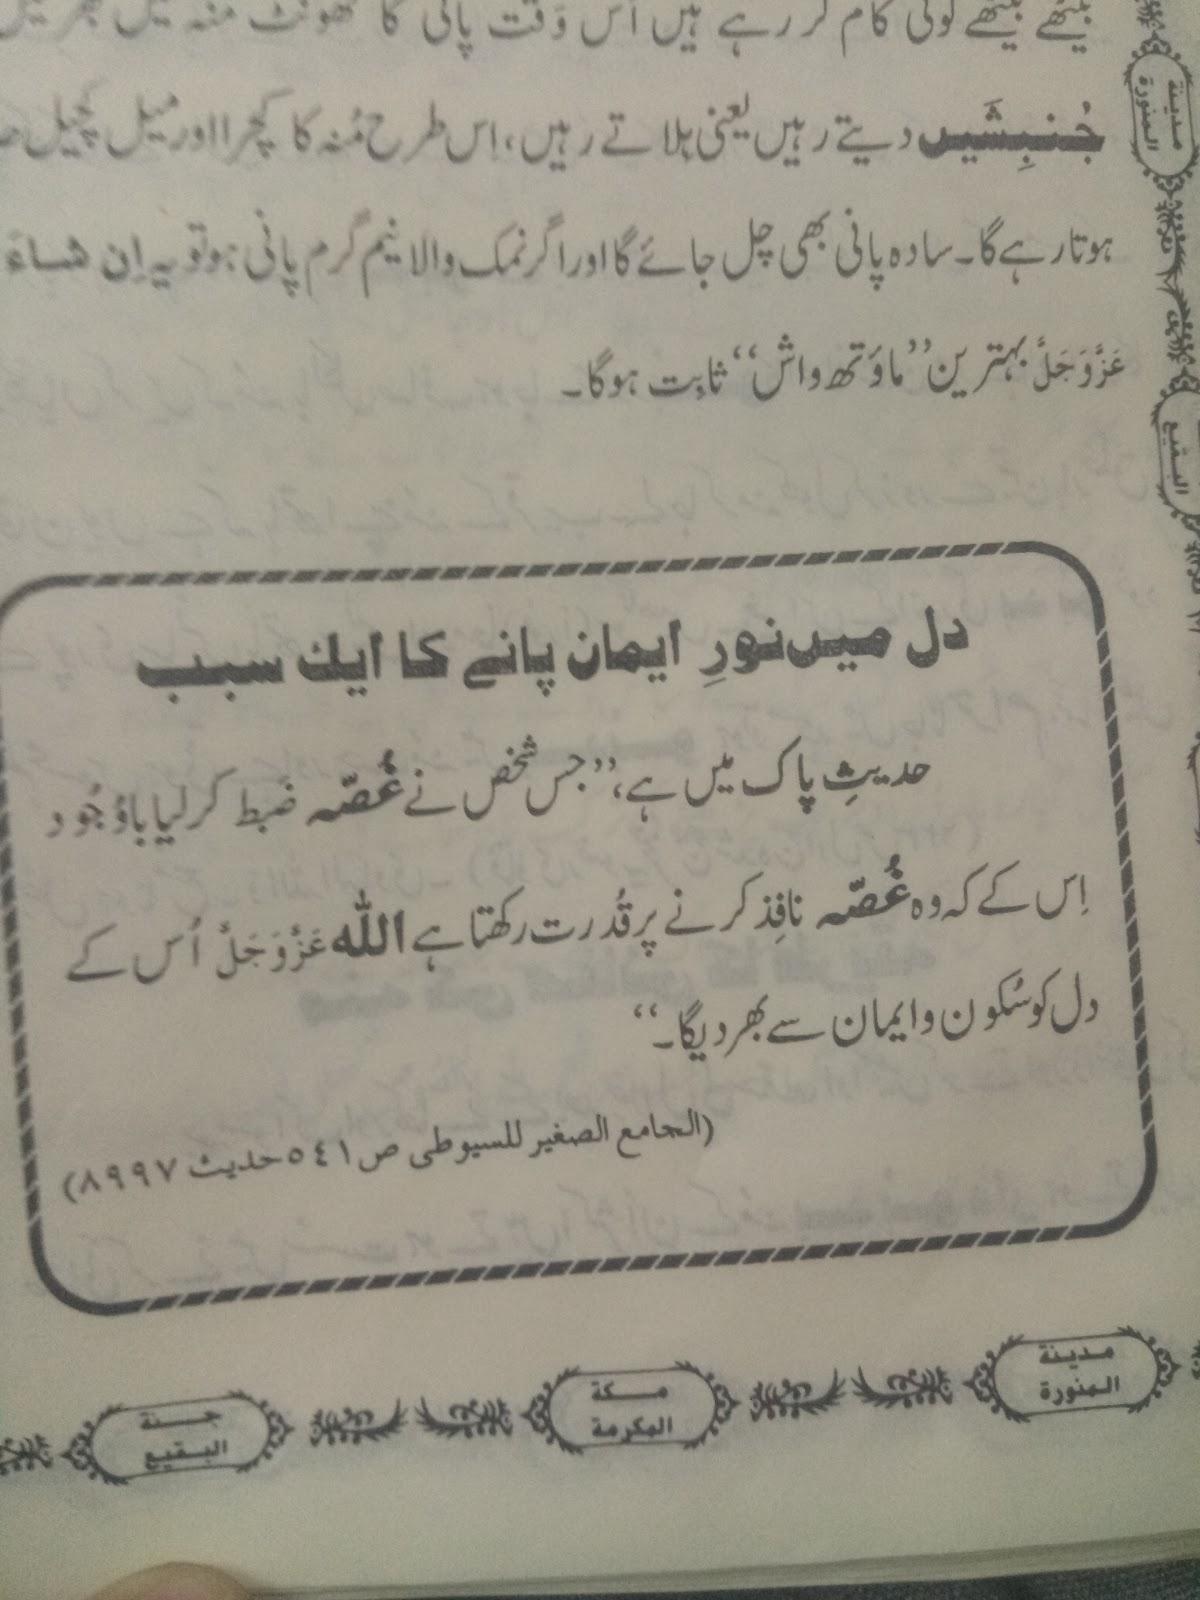 بیٹھے بیٹھے کوئی کام کر رہے ہیں اُس وَقت پانی کا گھونٹ منہ میں بھر لیں
جُنبِشَیں دیتے رہیں یعنی ہلاتے رہیں، اِس طرح مُنہ کا کچرا اور میل کچیل
ہوتا رہے گا۔ سادہ پانی بھی چل جائے گا اور اگر نمک والا نیم گرم پانی ہو تو یہ اِن شاءَ
عَزَّوَجَلَّ بہترین ’’ماؤتھ واش‘‘ ثابت ہوگا۔
دل میں نورِ ایمان پانے کا ایک سبب
حدیثِ پاک میں ہے، ’’جس شخص نے غُصّہ ضَبط کر لیا باوُجُود
اِس کے کہ وہ غُصّہ نافِذ کرنے پر قُدرت رکھتا ہے اللہ عَزَّوَجَلَّ اُس کے
دل کو سُکون و ایمان سے بھر دیگا۔‘‘
(الجامع الصغير للسيوطى ص ٥٤١ حديث ٨٩٩٧)
مدينة المنورة
البقيع
جنة البقيع
مكة المكرمة
مدينة المنورة